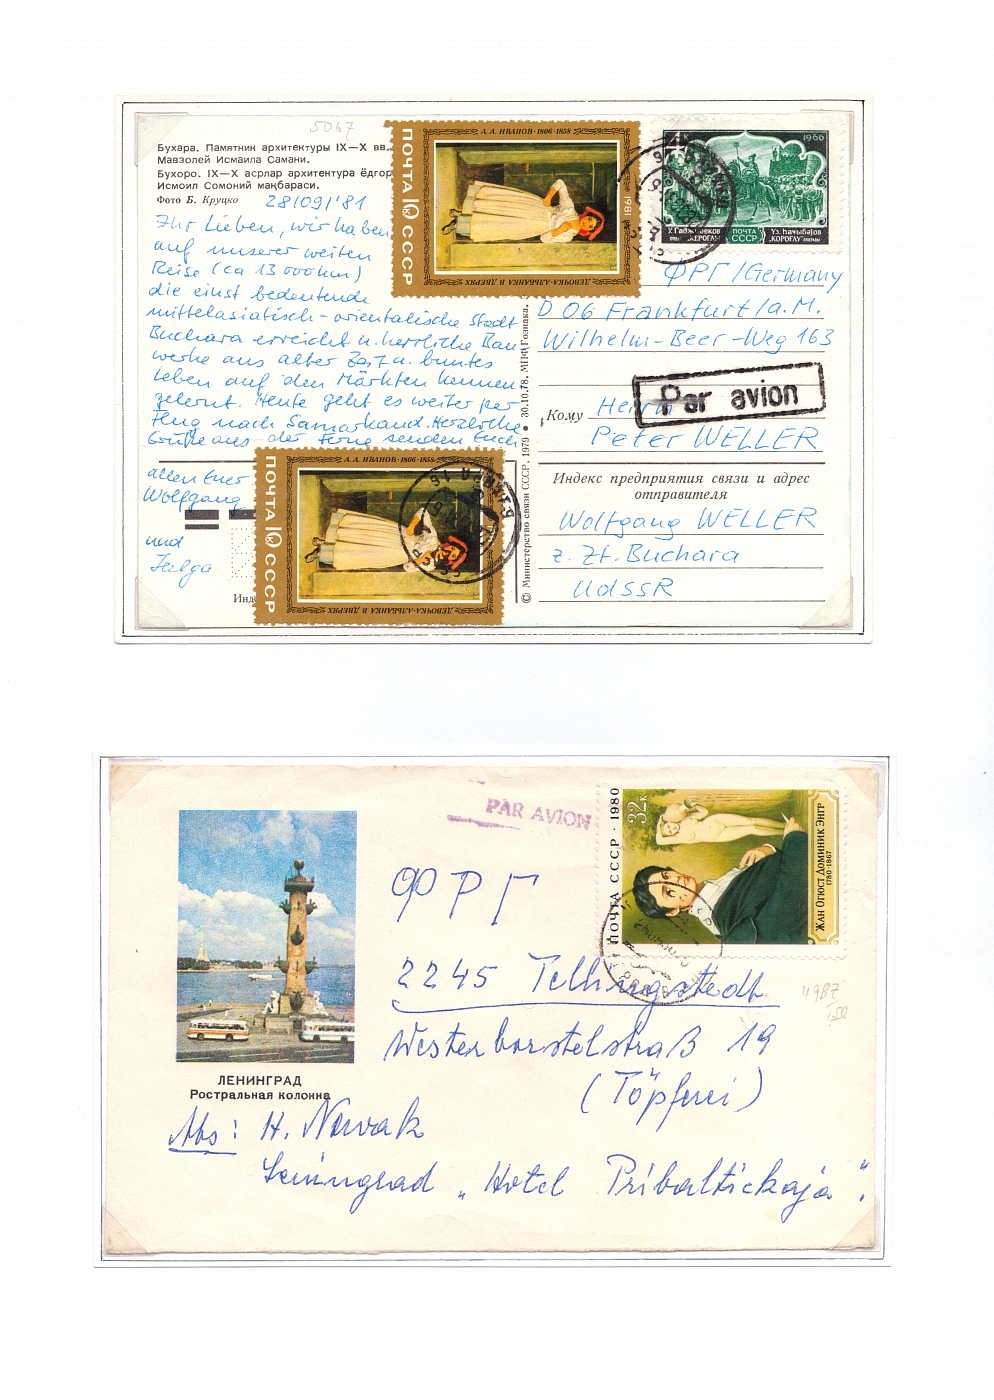 5067
Бухара. Памятник архитектуры IX—X вв.
Мавзолей Исмаила Самани.
Бухоро. IX—X асрлар архитектура ёдгор
Исмоил Сомоний мақбараси.
Фото Б. Круцко
28/09/'81
Ihr Lieben, wir haben
auf unserer weiten
Reise (ca 13 000 km)
die einst bedeutende
mittelasiatisch-orientalische Stadt
Buchara erreicht u. herrliche Bau-
werke aus alter Zeit u. buntes
Leben auf den Märkten kennen-
gelernt. Heute geht es weiter per
Flug nach Samarkand. Herzliche
Grüße aus der Ferne senden Euch
allen Euer
Wolfgang
und
Helga
Инд
ПОЧТА 10К СССР
А. А. ИВАНОВ · 1806-1858
1981
ДЕВОЧКА-АЛЬБАНКА В ДВЕРЯХ
ПОЧТА 10К СССР
А. А. ИВАНОВ · 1806-1858
ДЕВОЧКА-АЛЬБАНКА В ДВЕРЯХ
4К
1966
У. Гаджибеков
опера „КЕРОГЛЫ"
ПОЧТА
СССР
Уз. Һаҹыбәјов
„КОРОҒЛУ" операсы
© Министерство связи СССР, 1979 • 30.10.78. МПФ Гознака.
ФРГ/Germany
D 06 Frankfurt/a.M.
Wilhelm-Beer-Weg 163
Par avion
Кому
Herrn
Peter WELLER
Индекс предприятия связи и адрес
отправителя
Wolfgang WELLER
z. Zt. Buchara
UdSSR
PAR AVION
ПОЧТА СССР · 1980
32к
ЖАН ОГЮСТ ДОМИНИК ЭНГР
1780-1867
ФРГ
2245 Tellingstedt
Westerborstelstraß 19
(Töpferei)
4987
150
ЛЕНИНГРАД
Ростральная колонна
Abs: H. Nowak
Leningrad „Hotel Pribaltickaja".